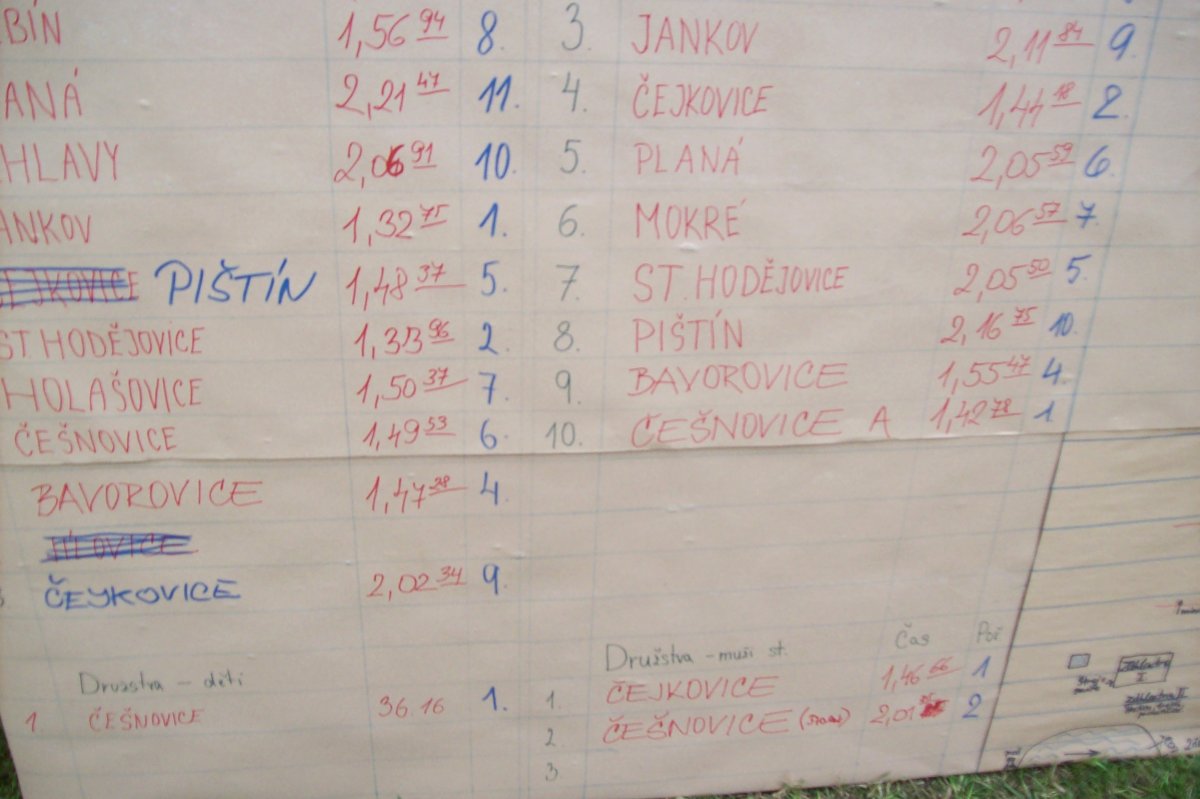 BÍN 1,56 94 8.
ANÁ 2,21 47 11.
HLAVY 2,06 91 10.
ANKOV 1,32 75 1.
PIŠTÍN 1,48 37 5.
ST HODĚJOVICE 1,33 96 2.
HOLAŠOVICE 1,50 37 7.
ČEŠNOVICE 1,49 53 6.
BAVOROVICE 1,47 38 4.
ČEJKOVICE 2,02 34 9.
Družstva - děti
1. ČEŠNOVICE 36.16 1.
3. JANKOV 2,11 84 9.
4. ČEJKOVICE 1,44 18 2.
5. PLANÁ 2,05 59 6.
6. MOKRÉ 2,06 57 7.
7. ST. HODĚJOVICE 2,05 50 5.
8. PIŠTÍN 2,16 75 10.
9. BAVOROVICE 1,55 47 4.
10. ČEŠNOVICE A 1,42 78 1
Družstva - muži st. Čas Poř
1. ČEJKOVICE 1,46 66 1
2. ČEŠNOVICE 2,01 2
3